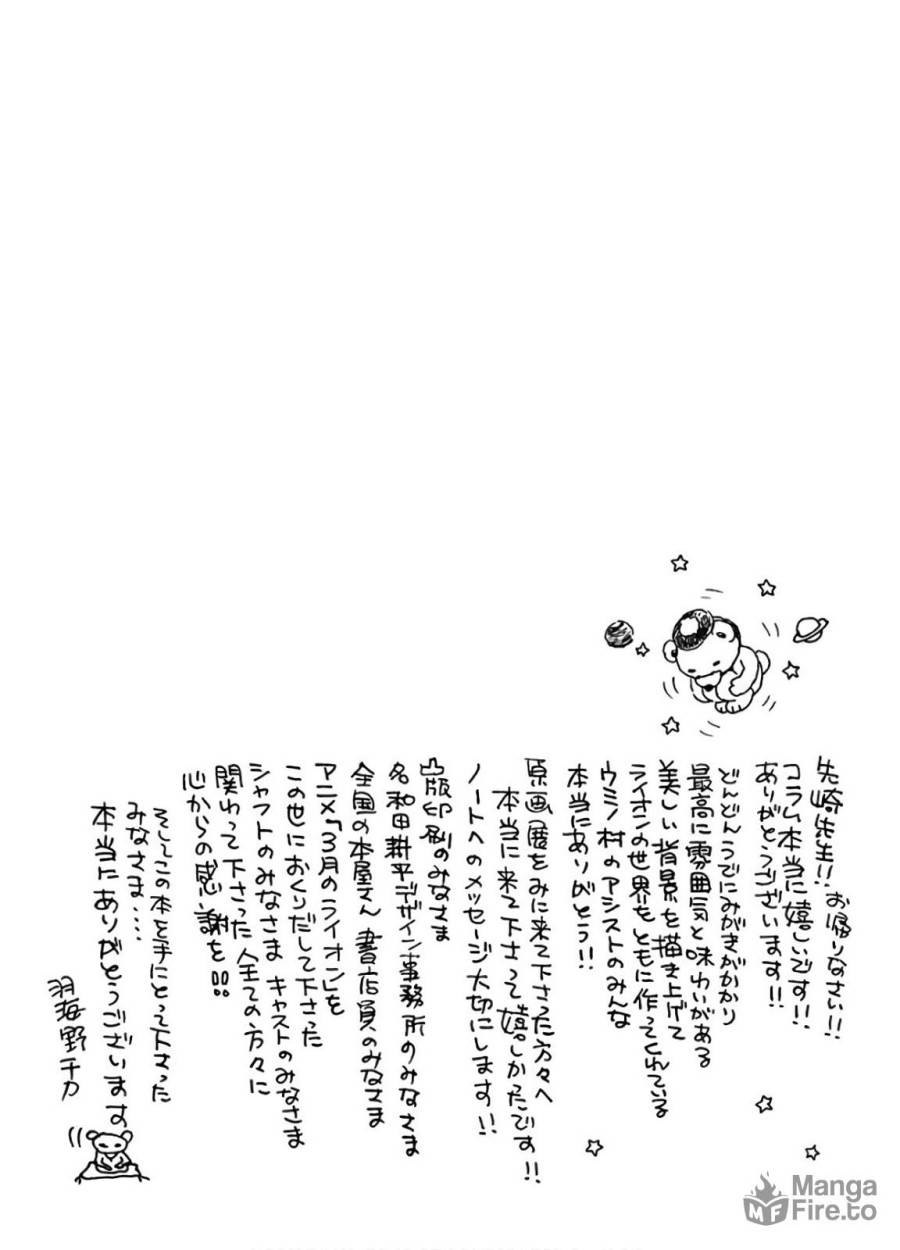 先崎先生!! お帰りなさい!!
コラム本当に嬉しいです!!
ありがとうございます!!
どんどんうでにみがきがかかり
最高に雰囲気と味わいがある
美しい背景を描き上げて
ライオンの世界をともに作ってくれている
ウミノ村のアシストのみんな
本当にありがとう!!
原画展をみに来て下さった方々へ
本当に来て下さって嬉しかったです!!
ノートへのメッセージ大切にします!!
凸版印刷のみなさま
名和田耕平デザイン事務所のみなさま
全国の本屋さん 書店員のみなさま
アニメ「3月のライオン」を
この世におくりだして下さった
シャフトのみなさま キャストのみなさま
関わって下さった全ての方々に
心からの感謝を!!
そしてこの本を手にとって下さった
みなさま・・・・
本当にありがとうございます
羽海野チカ
MF
Manga
Fire.to